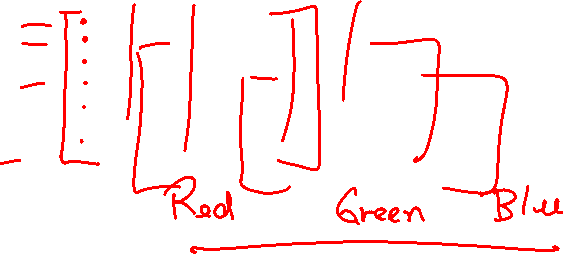 Red Green Blue